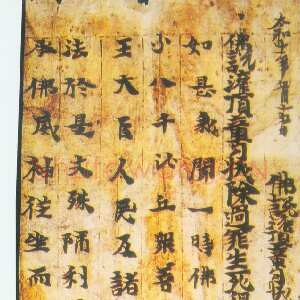 太和十一年
佛說灌頂章句
佛說灌頂章句拔除過罪生死得
如是我聞一時佛
与八千比丘眾菩
王大臣人民及諸
法於是文殊師利
承佛威神從坐而